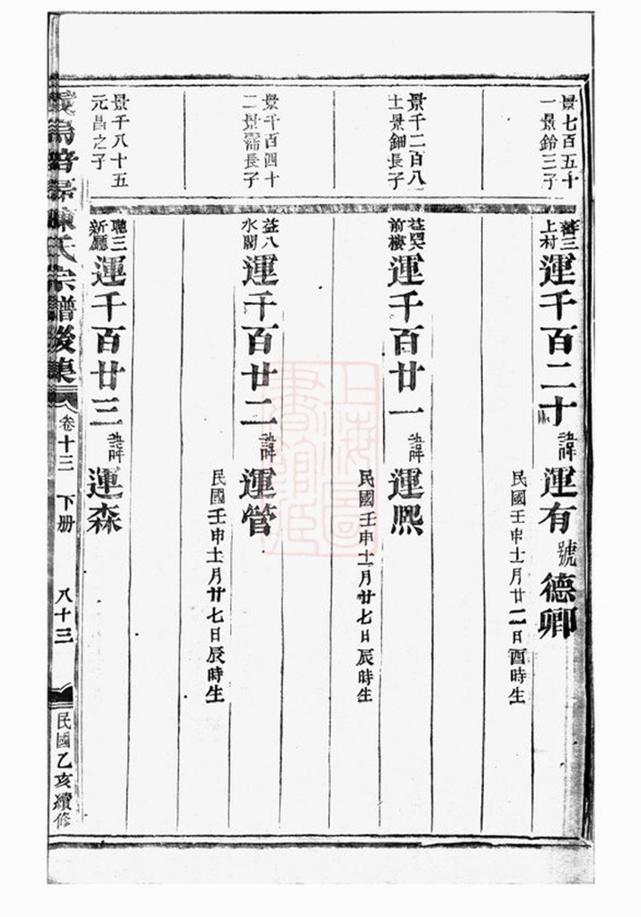 景七百五十
一景鈴三子
上村
運千百二十 諱 運有 號 德卿
民國壬申十一月廿二日酉時生
景千二百八
十景鈿長子
前樓
運千百廿一 諱 運熈
民國壬申十一月廿七日辰時生
景千百四十
二景霈長子
益八
水閣
運千百廿二 諱 運管
民國壬申十一月廿七日辰時生
景千八十五
元昌之子
聰三
新廳
運千百廿三 諱 運森
陳氏宗譜後集 卷十三 下册 八十三 民國乙亥續修
上海圖書館藏